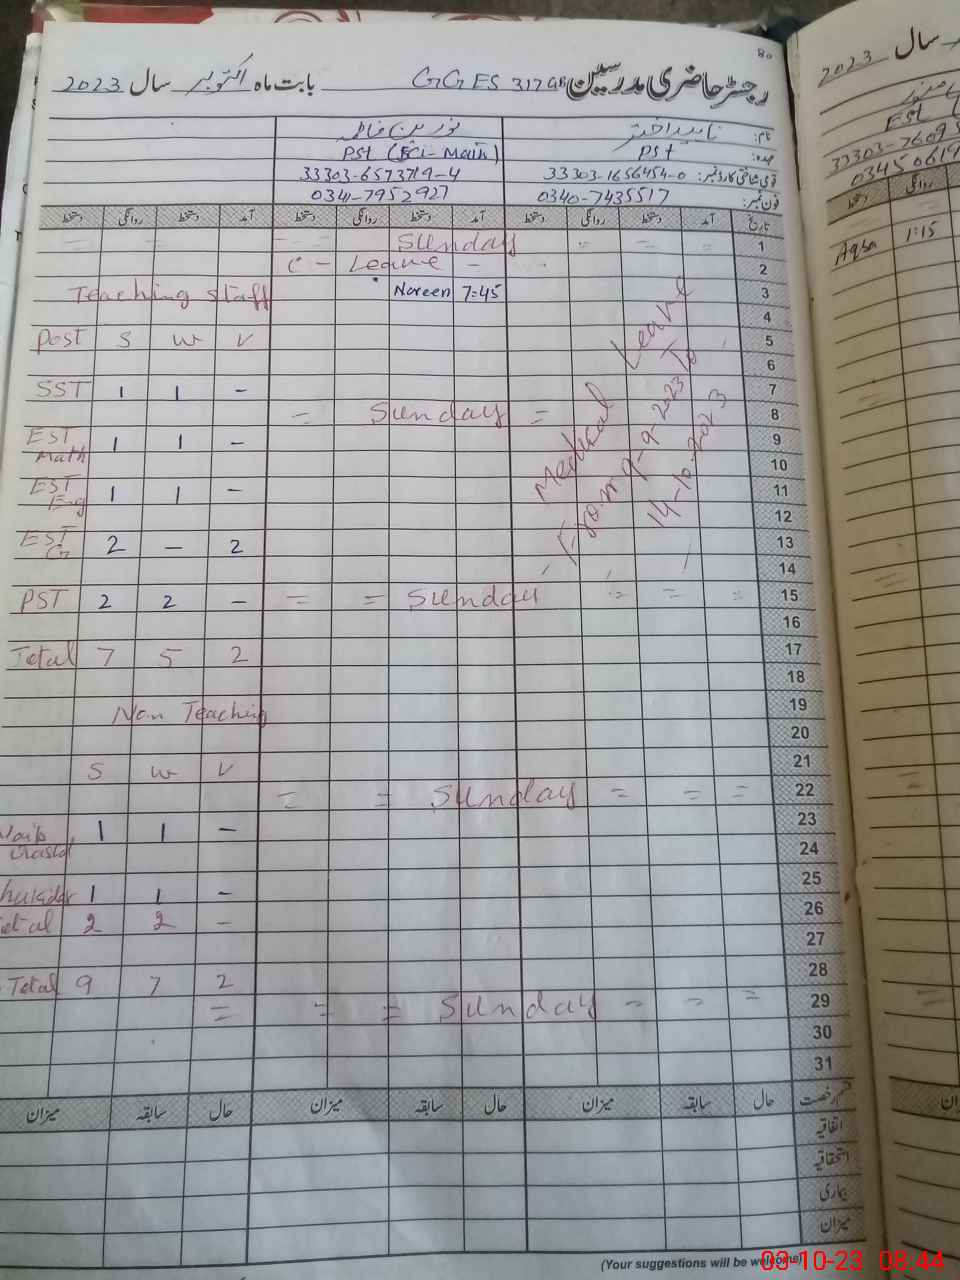 80
رجسٹر حاضری مدرسین GGES 317GB بابت ماہ اکتوبر سال 2023
نام: ناہید اختر نورین فاطمہ
عہدہ: PST PST (Sci-Math)
قومی شناختی کارڈ نمبر: 33303-1656454-0 33303-6573719-4
فون نمبر: 0340-7435517 0341-7952927
تاریخ آمد دستخط روانگی دستخط آمد دستخط روانگی دستخط آمد دستخط روانگی دستخط
1 = = = Sunday = =
2 C - Leave -
3 7:45 Noreen Teaching Staff
4
5 Post S W V
6
7 SST 1 1 -
8 = Sunday =
9 EST Math 1 1 -
10
11 EST Eng 1 1 -
12
13 EST G 2 - 2
14
Medical Leave
From 9-9-2023 To
14-10-2023
15 = = = Sunday = = PST 2 2 -
16
17 Total 7 5 2
18
19 Non Teaching
20
21 S W V
22 = = = Sunday = =
23 1 1 -
24
25 1 1 -
26 2 2 -
27
28 Total 9 7 2
29 = = = Sunday = = =
30
31
قسم رخصت حال سابقہ میزان حال سابقہ میزان حال سابقہ میزان
اتفاقیہ
استحقاقیہ
بیماری
میزان
(Your suggestions will be welcome)
سال 2023
EST
33303-7609
0345061
دستخط روانگی
Aqsa 1:15
03-10-23 08:44